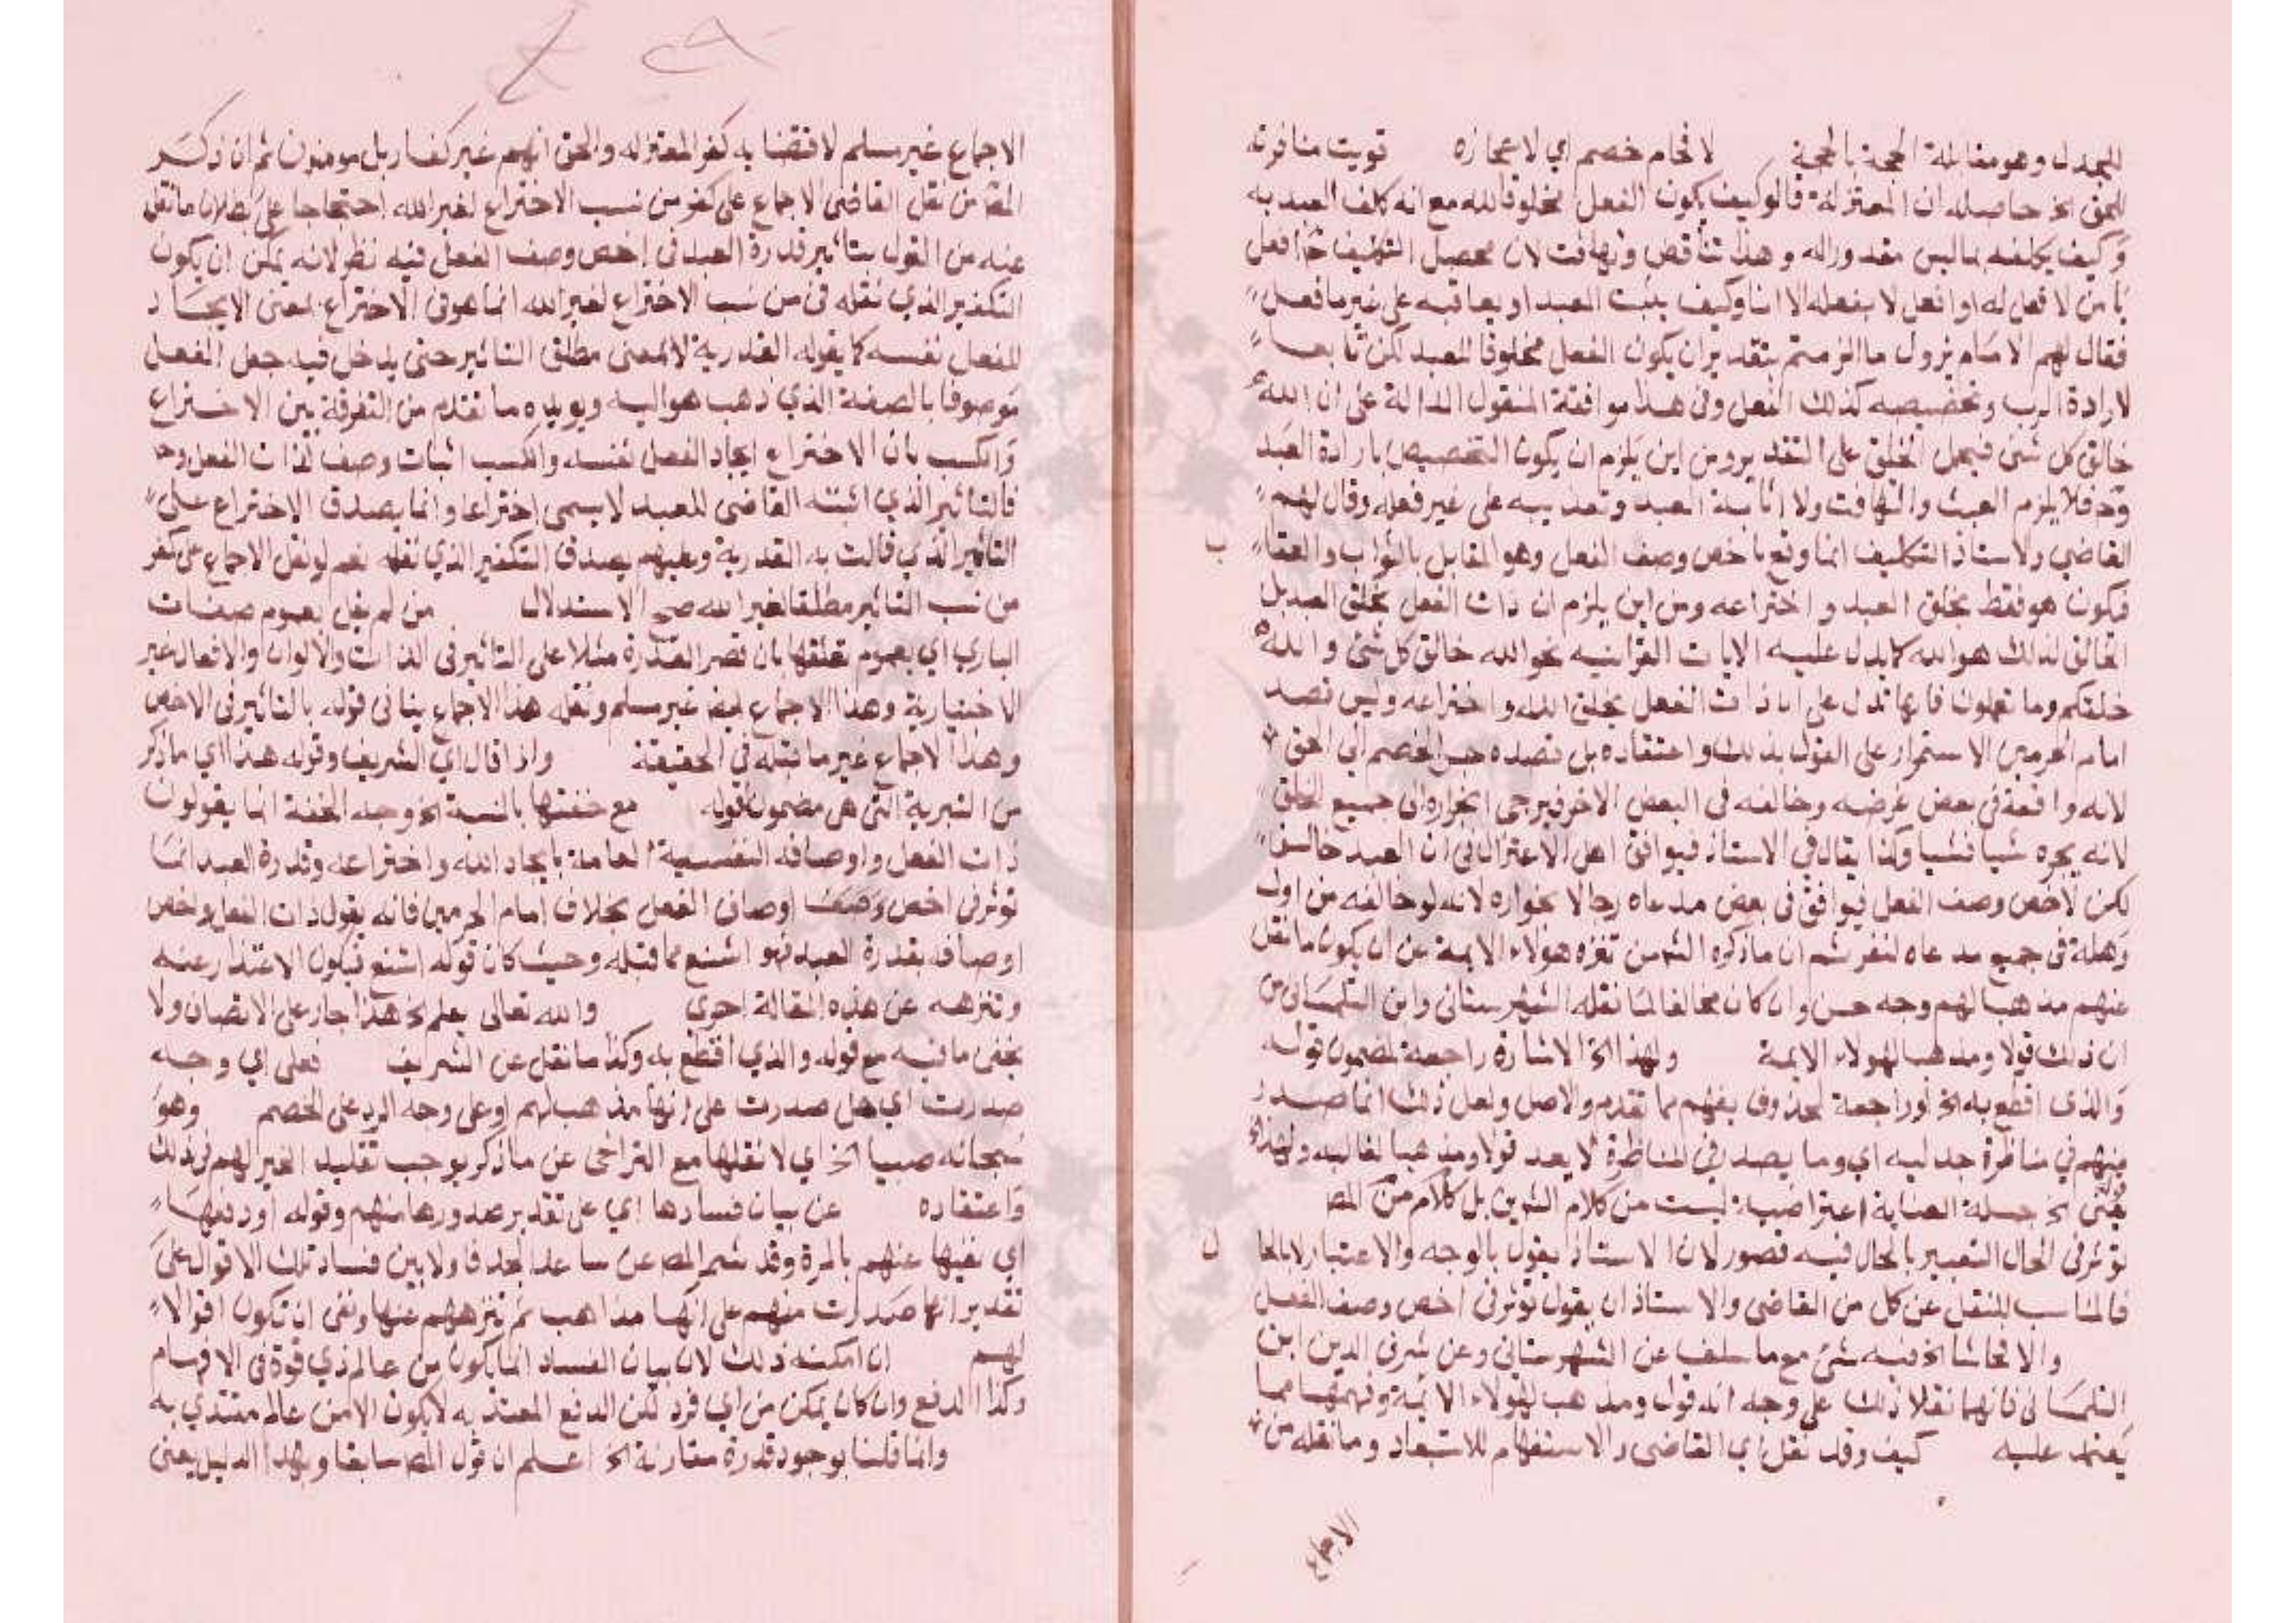 للجدل وهو مقابلة الحجة بالحجة لافحام خصم اي لاعجازه قويت منافرته
للحق الخ حاصله ان المعتزلة قالو كيف يكون الفعل مخلوقا لله مع انه كلف العبد به
وكيف يكلفه بما ليس مقدورا له وهذا تناقص وتهافت لان محصل التكليف ح افعل
يا من لا فعل له او افعل لا يفعله الا انا وكيف يثبت العبد او يعاقبه على غير ما فعل
فقال لهم الامام يزول ما الزمتم بتقدير ان يكون الفعل مخلوقا للعبد لكن تابعا
لارادة الرب وتخصيصه كذلك الفعل وفي هذا موافقة المنقول الدالة على ان الله
خالق كل شئ فيحمل الخلق على التقدير ومن اين يلزم ان يكون التخصيص بارادة العبد
وح فلا يلزم العبث والتهافت ولا اثابة العبد وتعذيبه على غير فعله وقال لهم
القاضي والاستاذ التكليف انما وقع باخص وصف الفعل وهو المقابل بالثواب والعقا
ب
فيكون هو فقط بخلق العبد واختراعه ومن اين يلزم ان ذات الفعل بخلق العبد بل
الخالق لذلك هو الله كما يدل عليه الايات القرانيه نحو الله خالق كل شئ والله
خلقكم وما تعملون فانها تدل على ان ذات الفعل بخلق الله واختراعه وليس قصد
امام الحرمين الاستمرار على القول بذلك واعتقاده بل قصده جر الخصم الى الحق
لانه وافقه في بعض غرضه وخالفه في البعض الاخر فيرجى انجراره الى جميع الحق
لانه يجره شيا فشيا وكذا يقال في الاستاذ فيوافق اهل الاعتزال في ان العبد خالق
لكن لاخص وصف الفعل فيوافق في بعض مدعاه رجا لانجراره لانه لو خالفه من اول
وهلة في جميع مدعاه لنفر ثم ان ما ذكره الش من تنزه هولاء الايمة عن ان يكون ما نقل
عنهم مذهبا لهم وجه حسن وان كان مخالفا لما نقله الشهرستاني وابن التلمساني من
ان ذلك قولا ومذهبا لهولاء الايمة ولهذا الخ الاشارة راجعة لمضمون قوله
والذي اقطع به الخ او راجعة لمحذوف يفهم مما تقدم والاصل ولعل ذلك انما صدر
منهم في مناظرة جدليه اي وما يصدر في المناظرة لا يعد قولا ومذهبا لقائله ولهذا الخ
الخ جملة العناية اعتراضية ليست من كلام الش بل كلام من المص
توثر في الحال التعبير بالحال فيه قصور لان الاستاذ يقول بالوجه والاعتبار لا بالحا
ل
فالمناسب للنقل عن كل من القاضي والاستاذ ان يقول توثر في اخص وصف الفعل
والا فحاشا الخ فيه شئ مع ما سلف عن الشهرستاني وعن شرف الدين ابن
التلمساني فانهما نقلا ذلك على وجه انه قول ومذهب لهولاء الائمة ونهمهما مما
يعتمد عليه كيف وقد نقل اي القاضي والاستفهام للاستبعاد وما نقله من
الاجماع
الاجماع غير مسلم لاقتضائه كفر المعتزله والحق انهم غير كفار بل مومنون ثم ان ذكر
المص من نقل القاضي الاجماع على كفر من نسب الاختراع لغير الله احتجاجا على بطلان ما نقل
عنه من القول بتاثير قدرة العبد في اخص وصف الفعل فيه نظر لانه يمكن ان يكون
التكفير الذي نقله في من نسب الاختراع لغير الله انما هو في الاختراع بمعنى الايجاد
للفعل نفسه كما يقوله القدرية لا بمعنى مطلق التاثير حتى يدخل فيه جعل الفعل
موصوفا بالصفة الذي ذهب هو اليه ويويده ما تقدم من التفرقة بين الاختراع
والكسب بان الاختراع ايجاد الفعل نفسه والكسب اثبات وصف لذات الفعل وح
فالتاثير الذي اثبته القاضي للعبد لا يسمى اختراعا وانما يصدق الاختراع على
التاثير الذي قالت به القدرية وعليهم يصدق التكفير الذي نقله نعم لو نقل الاجماع على كفر
من نسب التاثير مطلقا لغير الله صح الاستدلال من لم يقل بعموم صفات
الباري اي بعموم تعلقها بان قصر القدرة مثلا على التاثير في الذات والالوان والافعال غير
الاختيارية وهذا الاجماع ايضا غير مسلم ونقله هذا الاجماع ينافي قوله بالتاثير في الاخص
وهذا الاجماع غير ما قبله في الحقيقة واذا قال اي الشريف وقوله هذا اي ما ذكر
من التبرية التي هي مضمون قوله مع خفتها بالنسبة الخ وجه الخفة انما يقولون
ذات الفعل واوصافه النفسية العامة بايجاد الله واختراعه وقدرة العبد انما
توثر في اخص وصف اوصاف الفعل بخلاف امام الحرمين فانه يقول ذات الفعل واخص
اوصافه بقدرة العبد فهو اشنع مما قبله وحيث كان قوله اشنع فيكون الاعتذار عنه
وتنزهه عن هذه المقالة احرى والله تعالى يعلم الخ هذا جار على الانصاف ولا
يخفى ما فيه مع قوله والذي اقطع به وكذا ما نقل عن الشريف فعلى اي وجه
صدرت اي هل صدرت على انها مذهب لهم او على وجه الرد على الخصم وهو
الخ اي لا نقلها مع التراخي عن ما ذكر يوجب تقليد الغير لهم في ذلك
واعتقاده عن بيان فسادها اي على تقدير صدورها منهم وقوله او دفعها
اي نفيها عنهم بالمرة وقد شمر المص عن ساعد الجد فاولا بين فساد تلك الاقوال على
تقدير انها صدرت منهم على انها مذاهب ثم تنزههم عنها ونفى ان تكون اقوالا
لهم ان امكنه ذلك لان بيان الفساد انما يكون من عالم ذي قوة في الافهام
وكذا الدفع وان كان يمكن من اي فرد لكن الدفع المعتد به لا يكون الا من عالم مقتدي به
وانما قلنا بوجود قدرة مقارنة الخ اعلم ان قول المص سابقا وبهذا الدليل يعنى